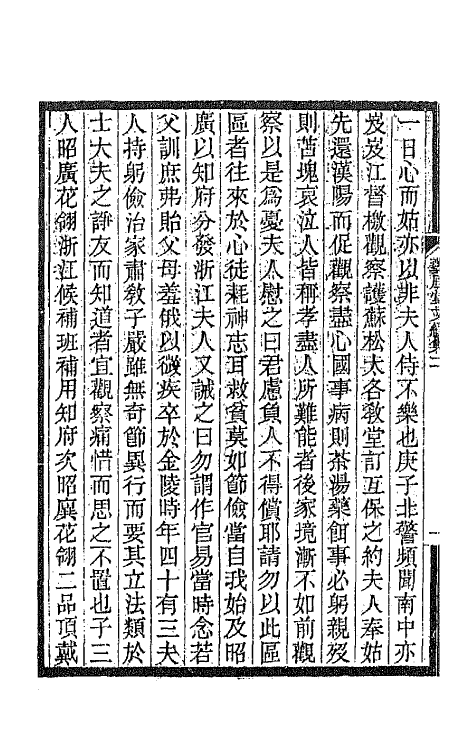 一日心而姑亦以非夫人侍不樂也庚子北警頻聞南中亦
岌岌江督檄觀察護蘇松太各敎堂訂互保之約夫人奉姑
先還漢陽而促觀察盡心國事病則茶湯藥餌事必躬親歿
則苫塊哀泣人皆稱孝盡人所難能者後家境漸不如前觀
察以是爲憂夫人慰之曰君慮負人不得償耶請勿以此區
區者往來於心徒耗神志耳救貧莫如節儉當自我始及昭
廣以知府分發浙江夫人又誡之曰勿謂作官易當時念若
父訓庶弗貽父母羞俄以微疾卒於金陵時年四十有三夫
人持躬儉治家肅敎子嚴雖無奇節異行而要其立法類於
士大夫之諍友而知道者宜觀察痛惜而思之不置也子三
人昭廣花翎浙江候補班補用知府次昭廙花翎二品頂戴